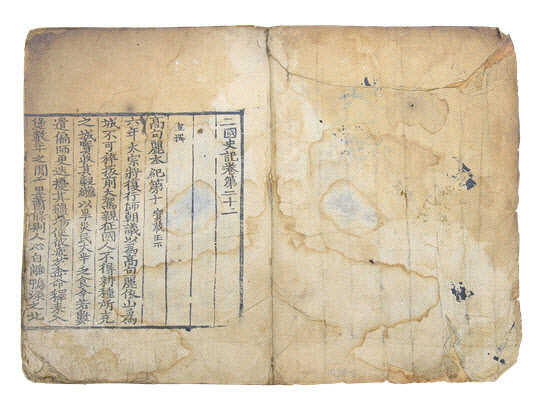 二國史記卷第二十一
宣撰
高句麗本紀第十 寶藏王下
六年太宗將復行師朝議以爲高句麗依山爲
城不可猝拔前大駕親征國人不得耕種所克
之城實收其穀繼以旱災民太半乏食今若數
遣偏師更迭擾其疆場使彼疲於奔命釋耒入
堡數年之間千里蕭條則人心自離鴨淥之北